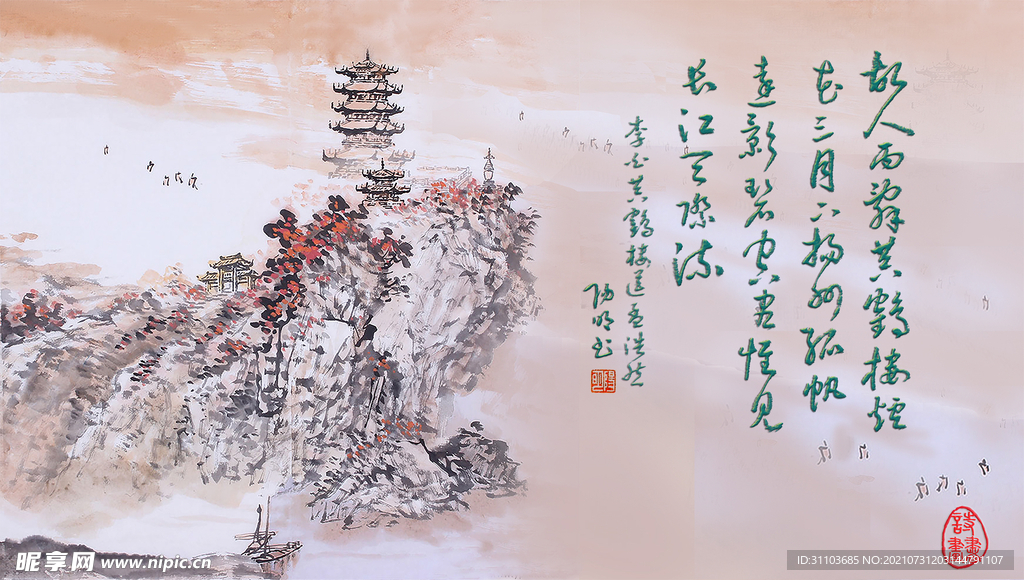 故人西辭黄鶴楼煙
花三月下揚州孤帆
遠影碧空盡惟見
長江天際流
李白黄鶴楼送孟浩然
陽明书
昵享网 www.nipic.cn
ID:31103685 NO:20210731203144791107